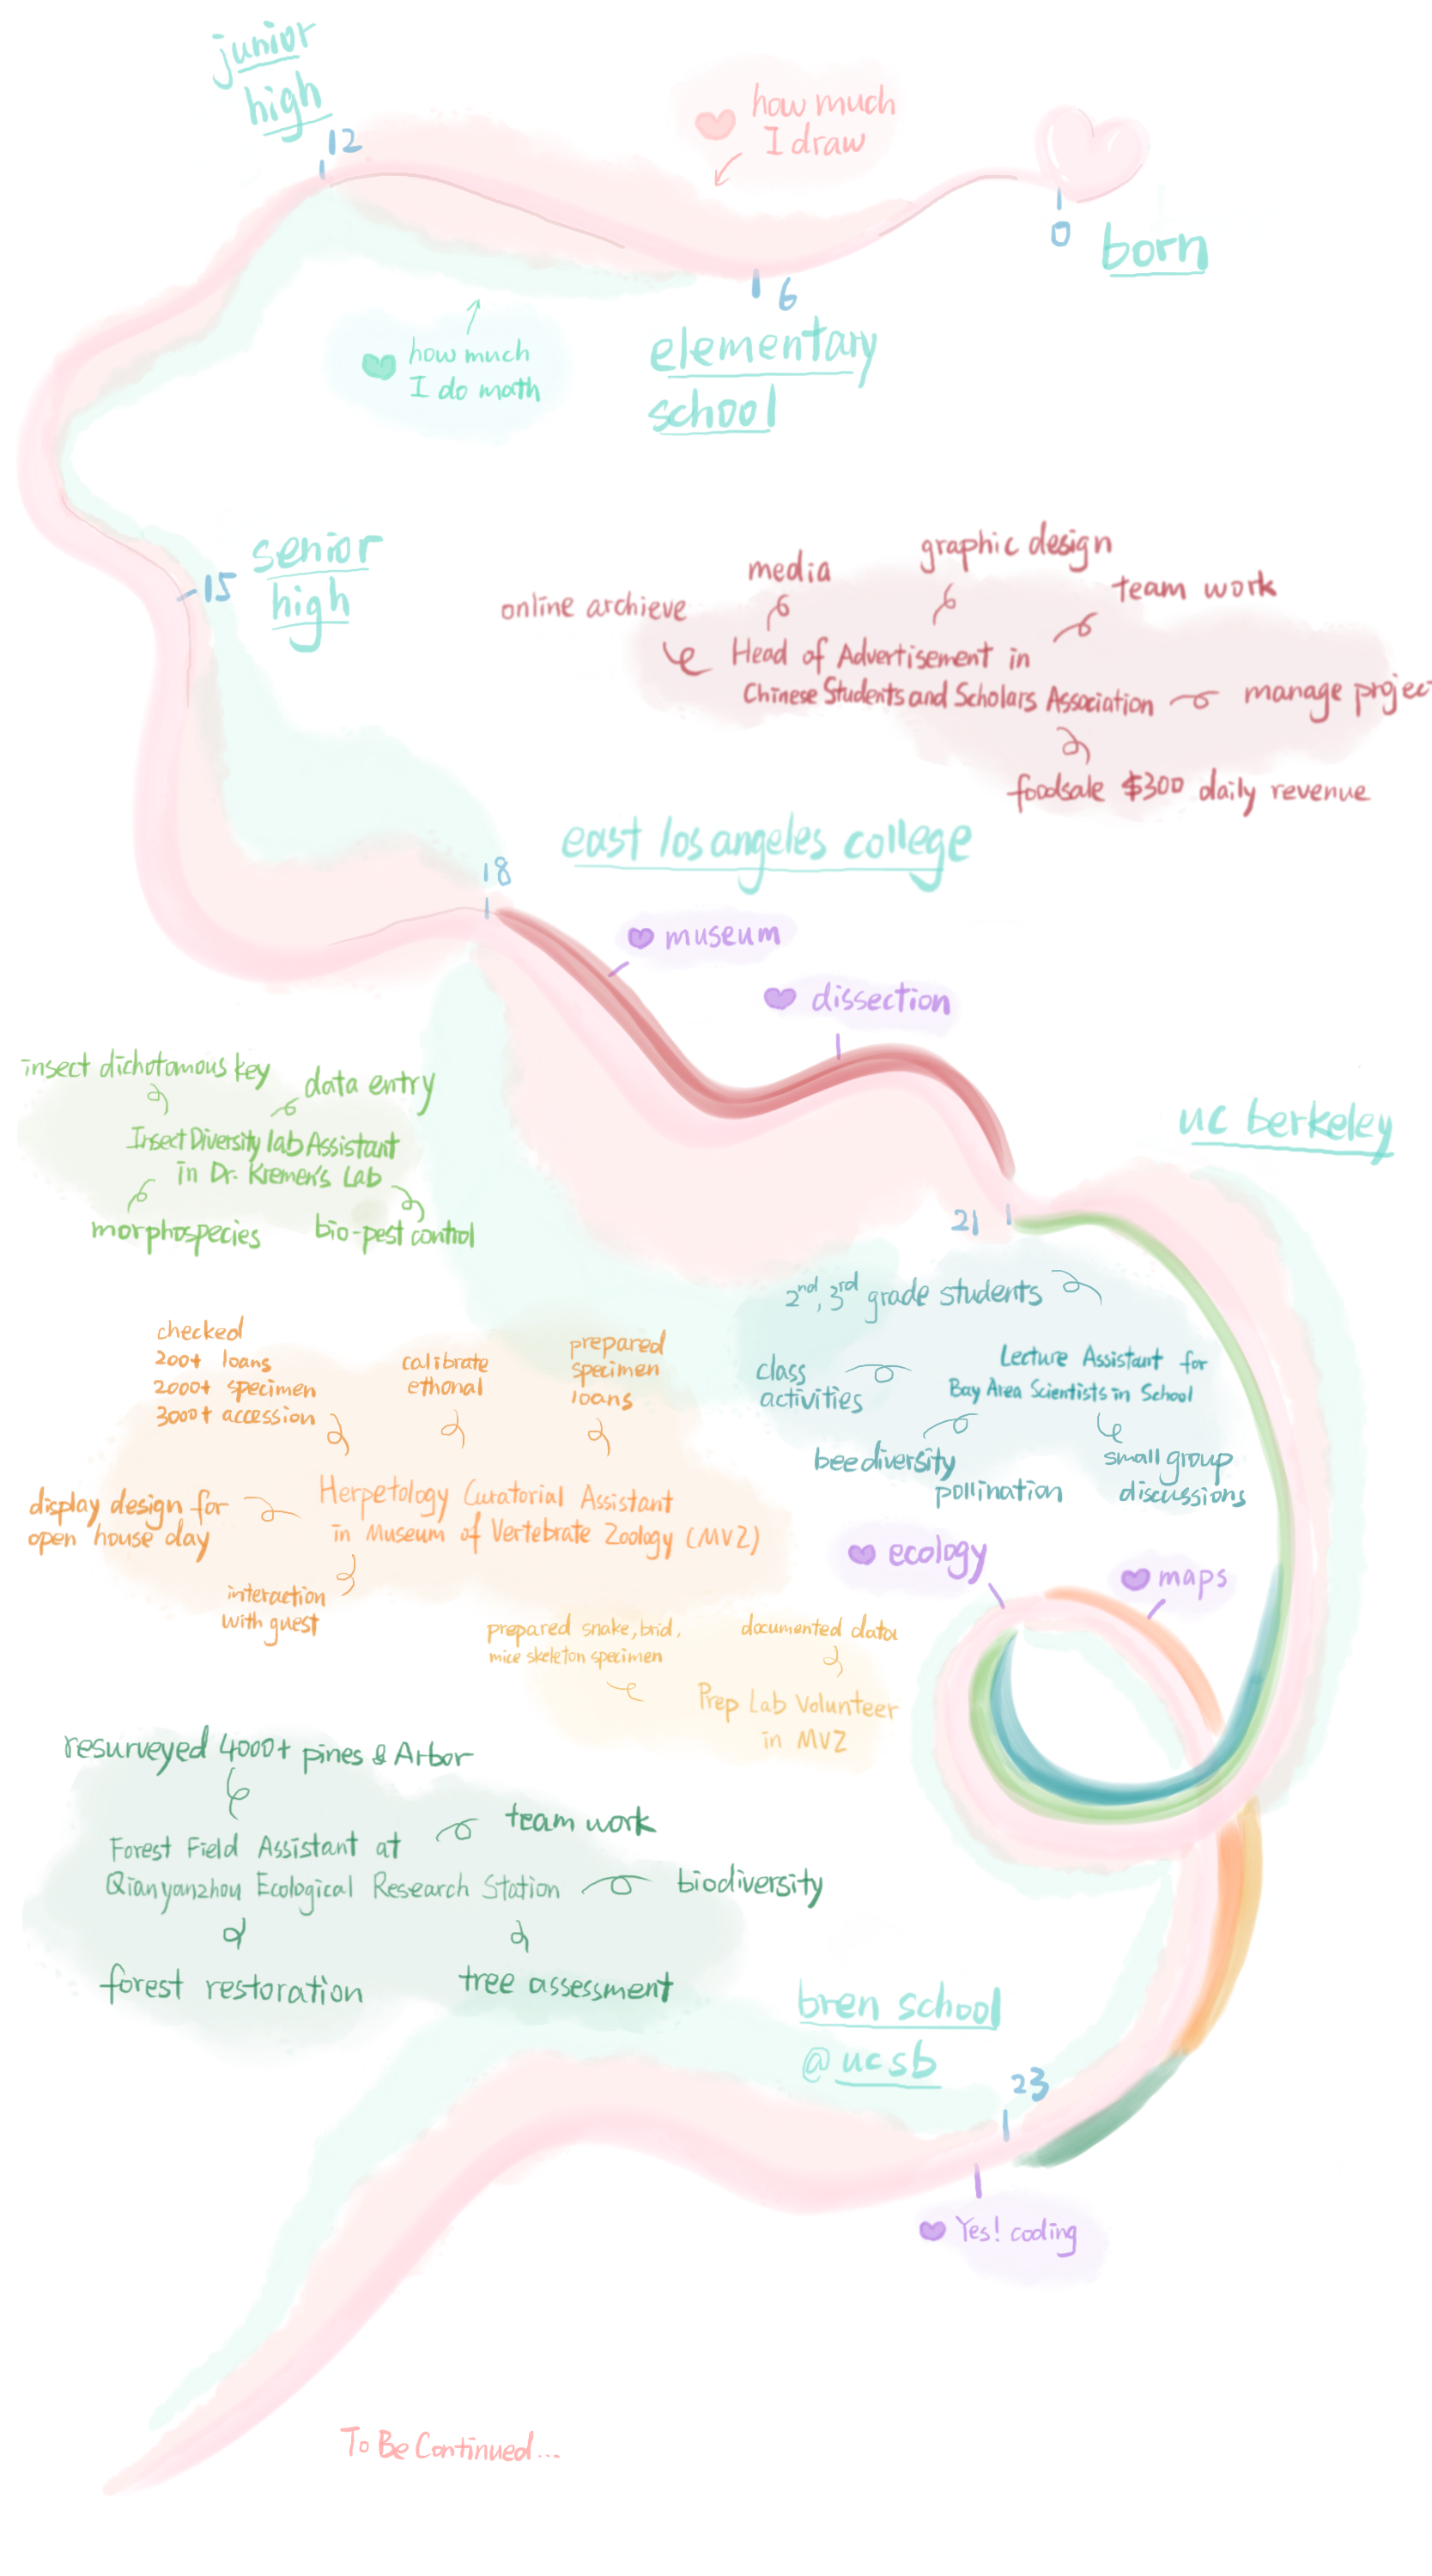 junior
high
12
how much
I draw
0
born
6
elementary
school
how much
I do math
15
senior
high
online archieve
media
graphic design
team work
Head of Advertisement in
Chinese Students and Scholars Association
manage projec
foodsale $300 daily revenue
18
east los angeles college
museum
dissection
insect dichotomous key
data entry
Insect Diversity lab Assistant
in Dr. Kremen's Lab
morphospecies
bio-pest control
uc berkeley
21
2nd, 3rd grade students
class
activities
Lecture Assistant for
Bay Area Scientists in School
bee diversity
pollination
small group
discussions
checked
200+ loans
2000+ specimen
3000+ accession
calibrate
ethonal
prepared
specimen
loans
display design for
open house day
Herpetology Curatorial Assistant
in Museum of Vertebrate Zoology (MVZ)
interaction
with guest
ecology
maps
prepared snake, brid,
mice skeleton specimen
documented data
Prep Lab Volunteer
in MVZ
resurveyed 4000+ pines & Arbor
Forest Field Assistant at
Qianyanzhou Ecological Research Station
team work
biodiversity
forest restoration
tree assessment
bren school
@ ucsb
23
Yes! coding
To Be Continued...